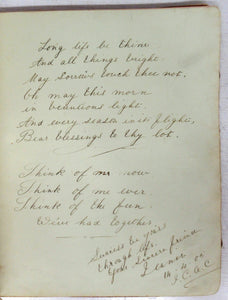 Long life be thine
And all things bright.
May Sorrows touch thee not.
Oh may this morn
in beauteous light.
And every season in its flight,
Bear blessings to thy lot.
Think of me now
Think of me ever
Think of the fun
We've had together.
Success be yours
through life.
Your Sincere friend